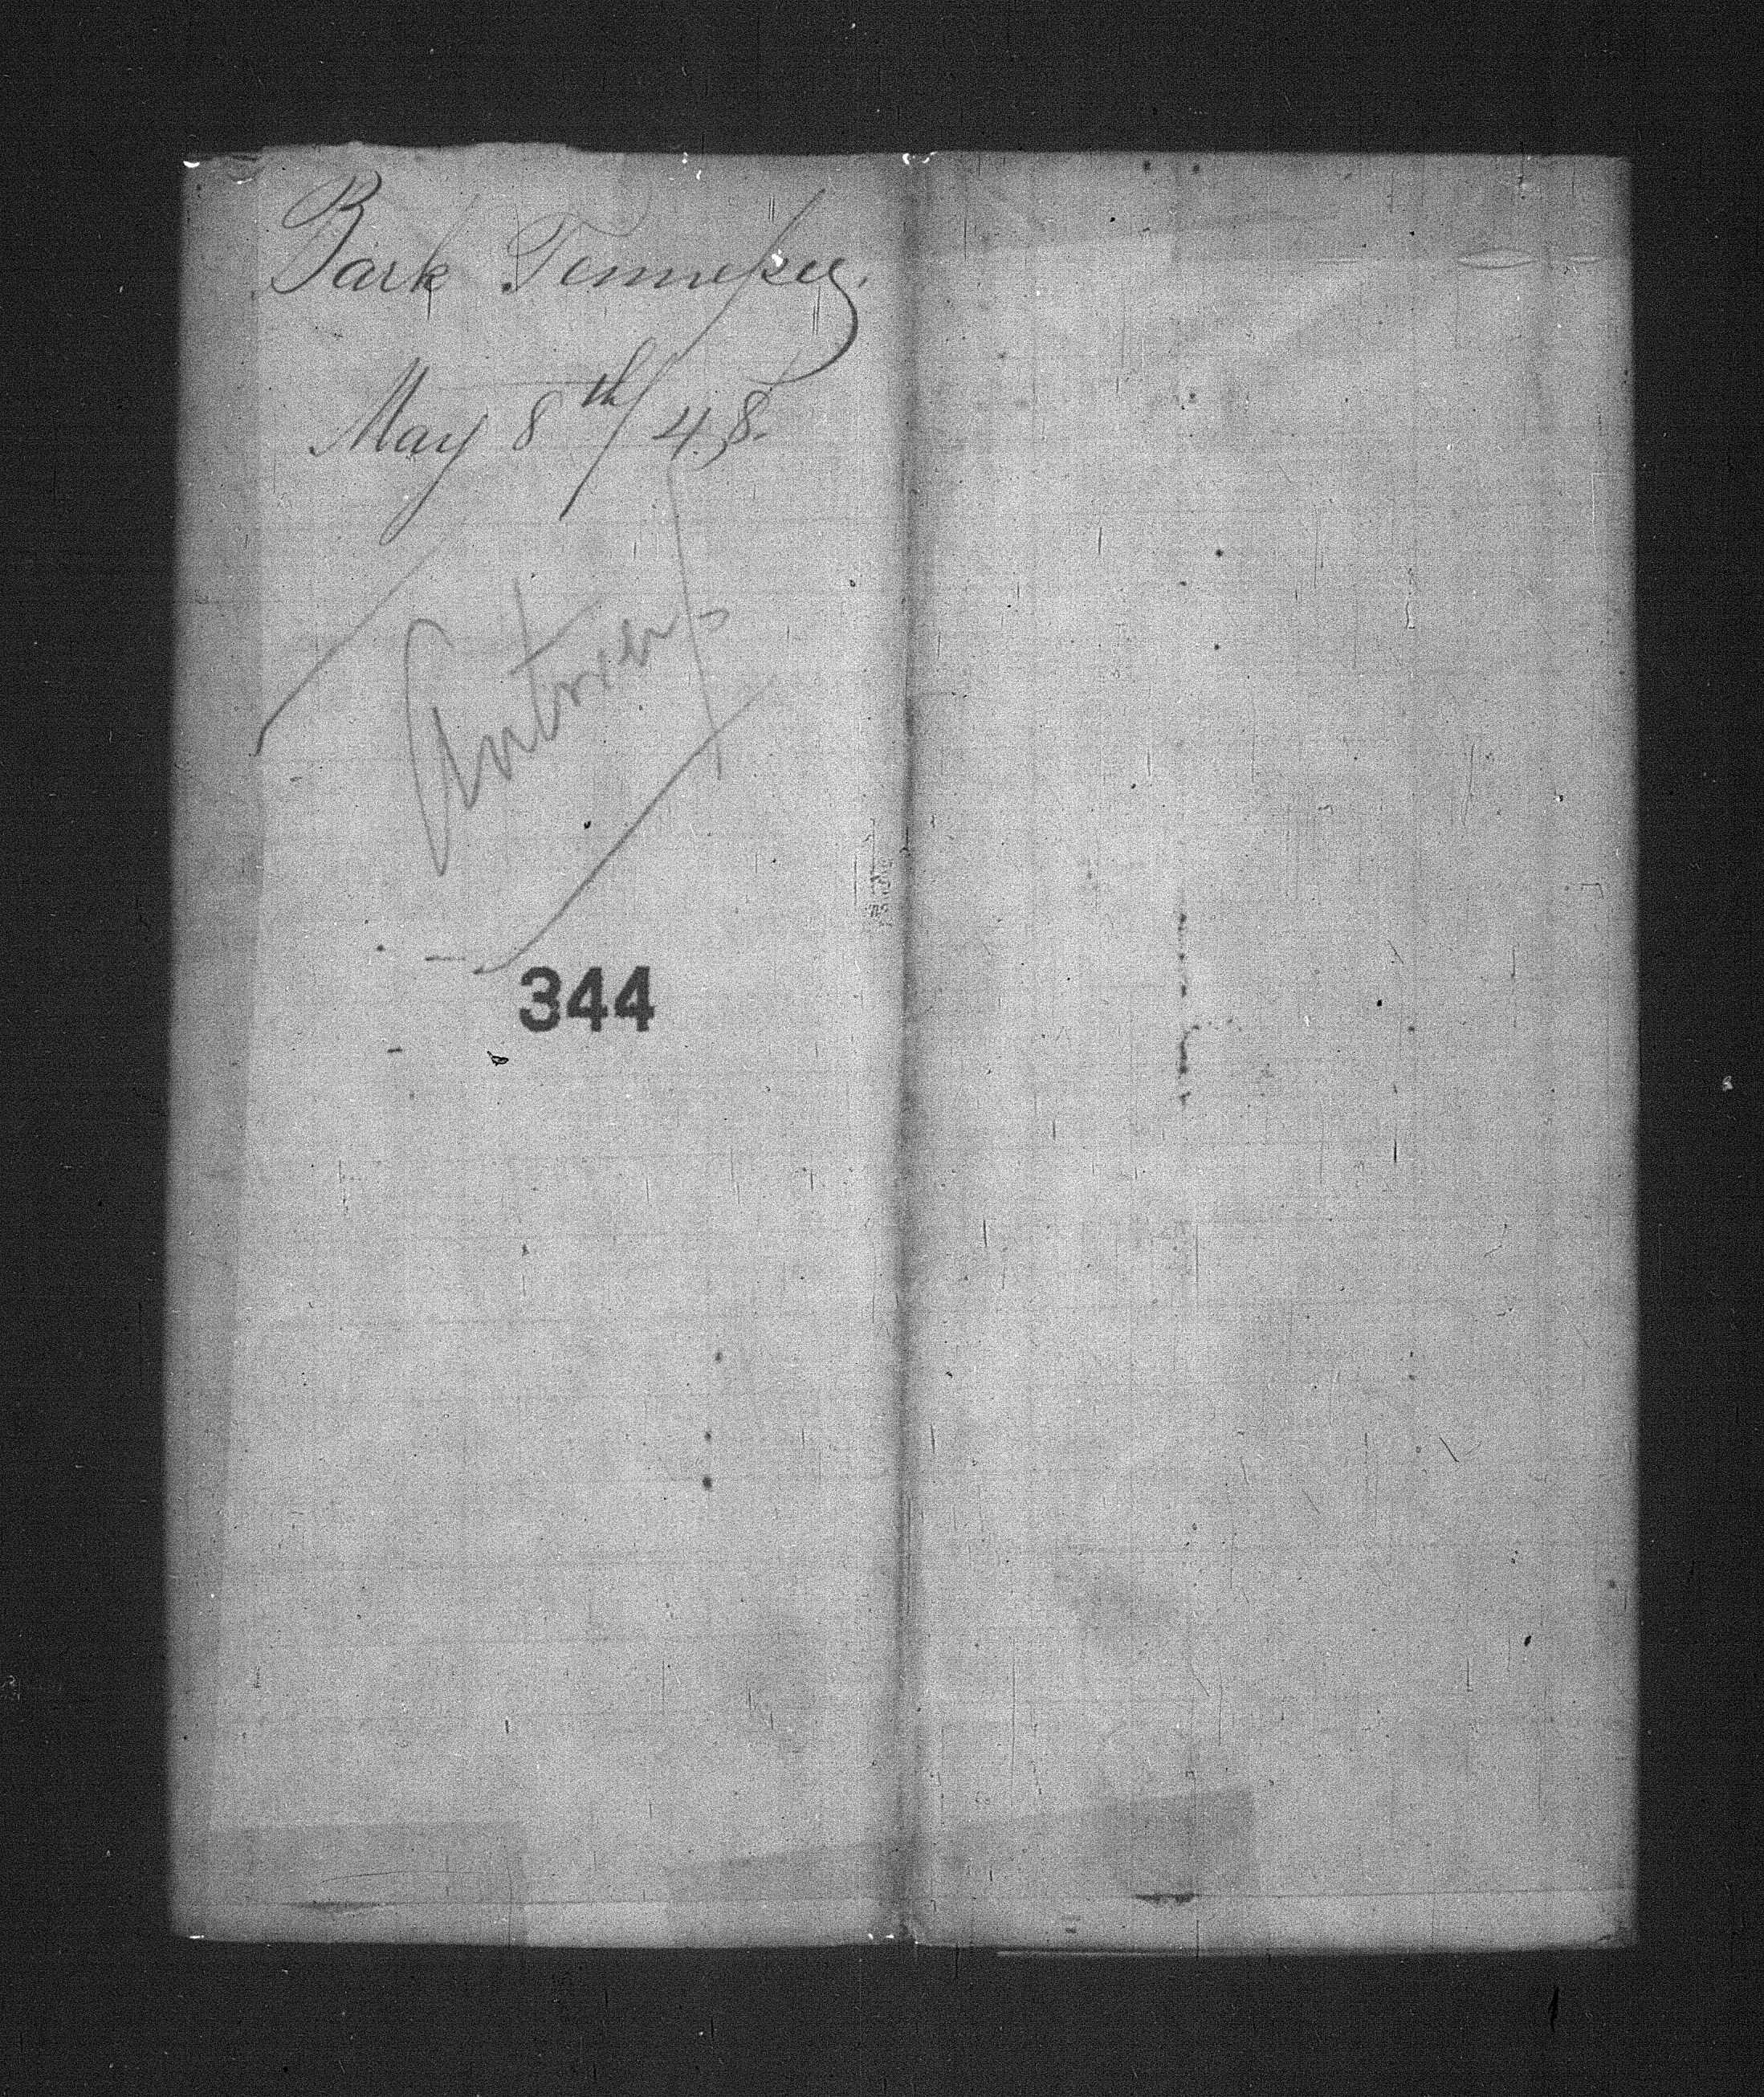 Bark Tennessee.
May 8th/48.
Antwerp
344